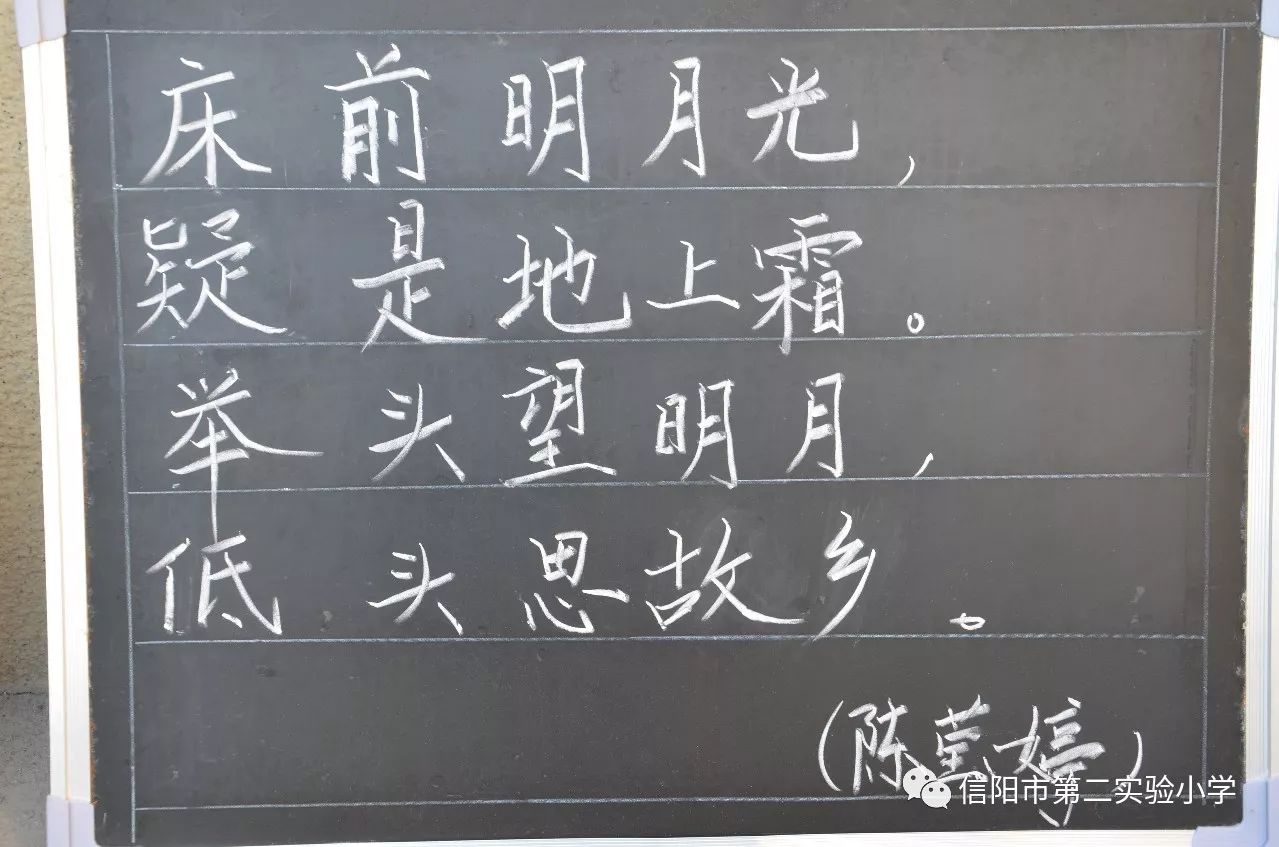 床前明月光，
疑是地上霜。
举头望明月，
低头思故乡。
（陈莹婷）
信阳市第二实验小学